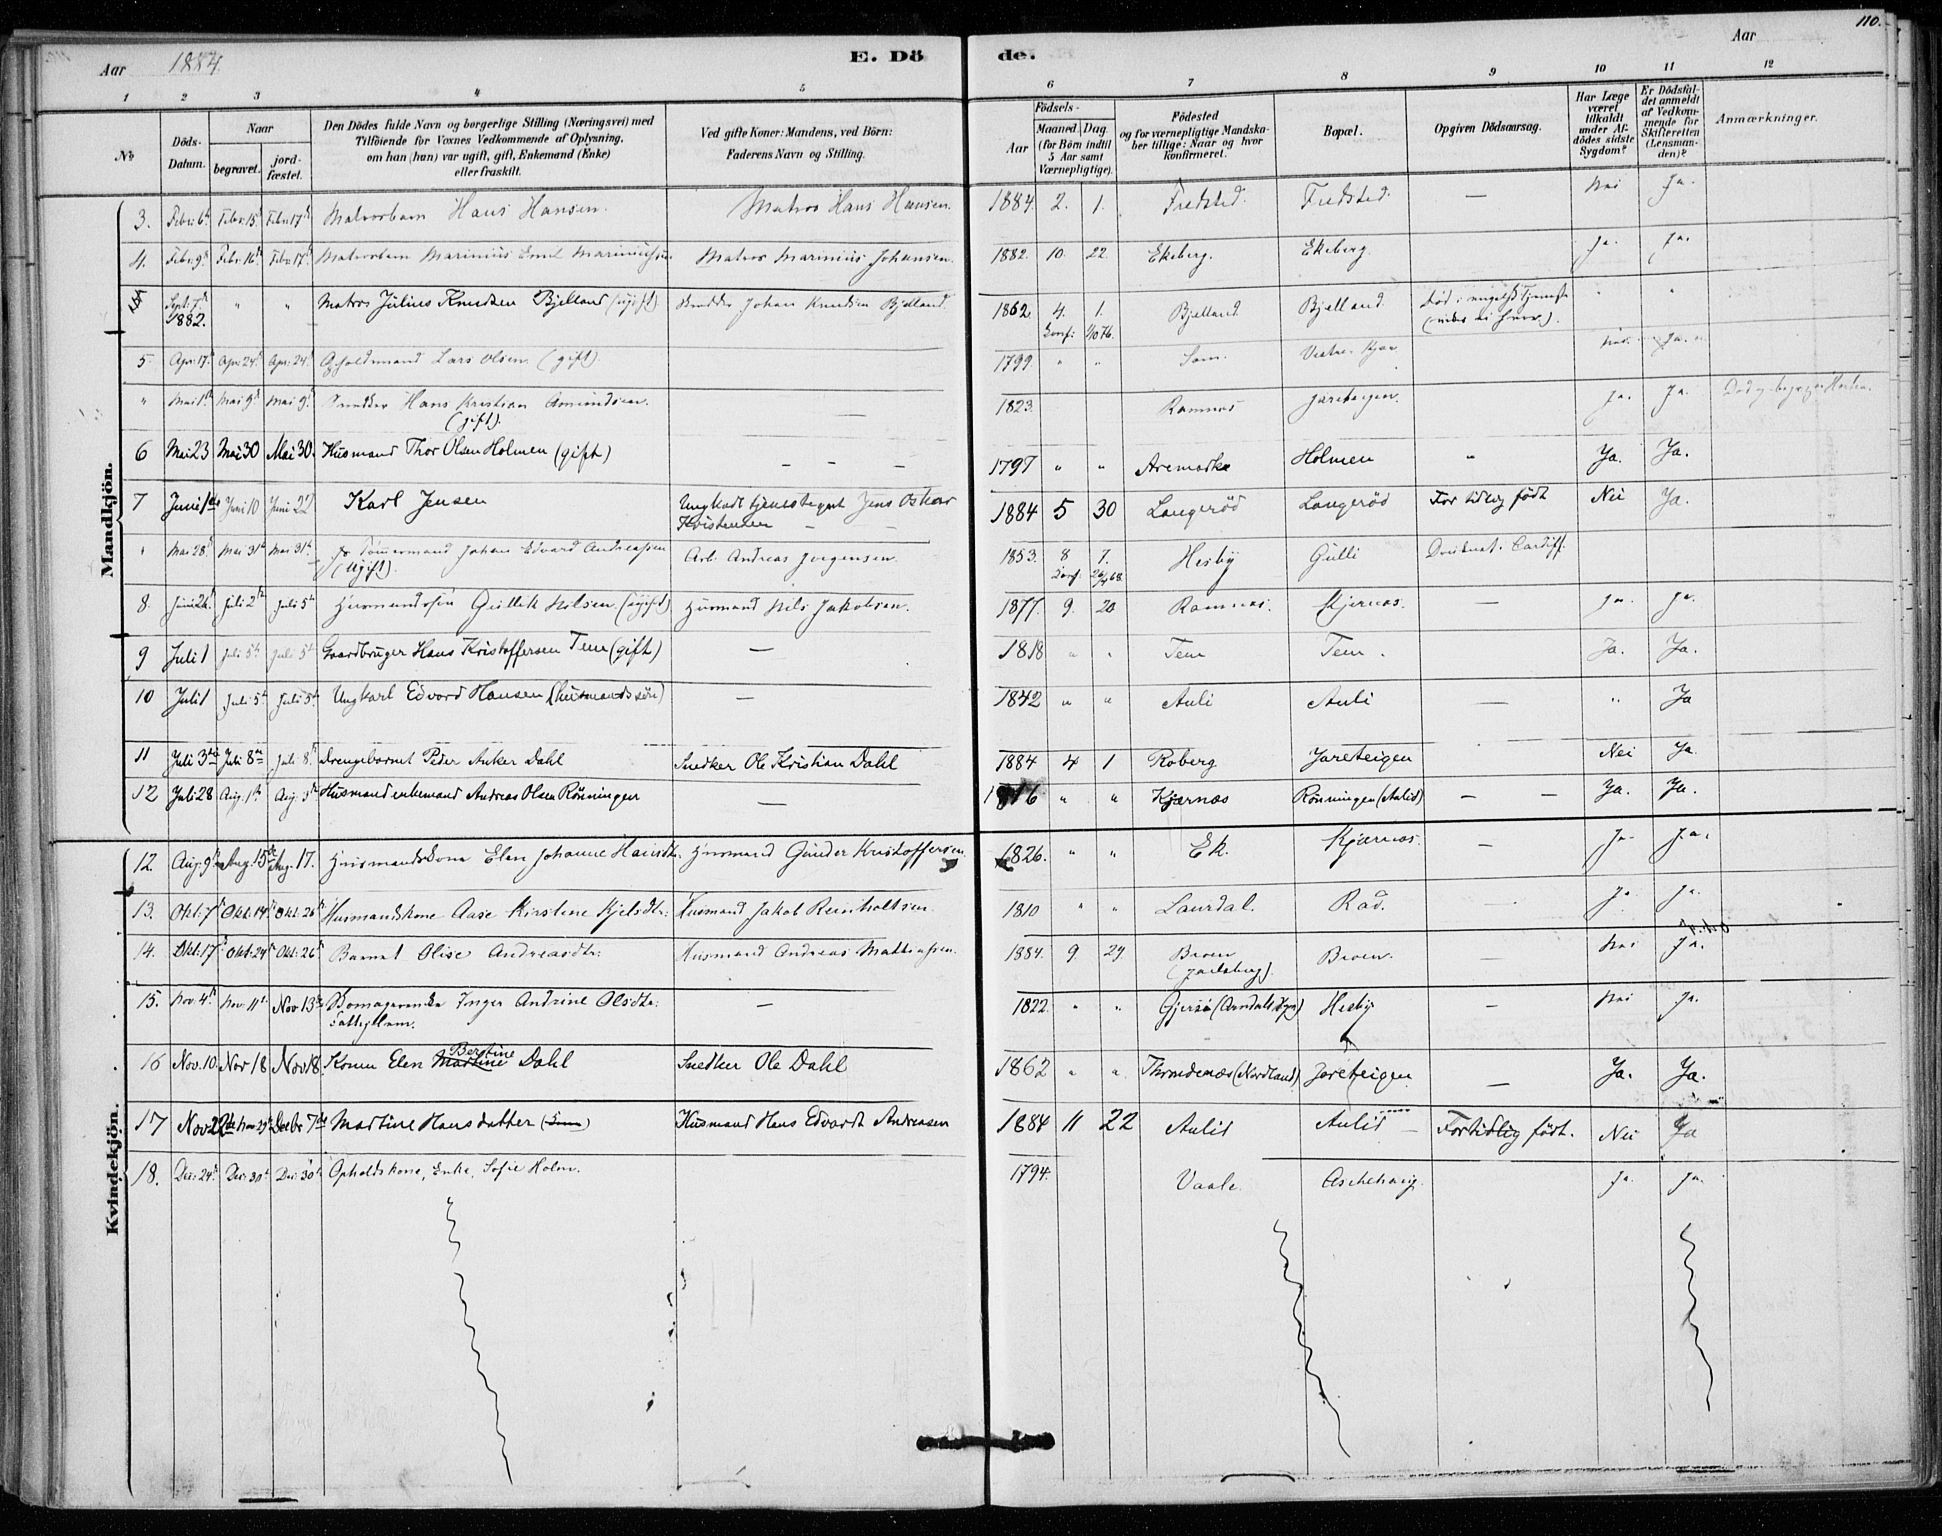 110.
Aar 1884. E. Dö de. Aar
1 2 3 4 5 6 7 8 9 10 11 12
No Döds-Datum. Naar begravet. jordfæstet. Den Dödes fulde Navn og borgerlige Stilling (Næringsvei) med Tilföiende for Voxnes Vedkommende af Oplysning, om han (hun) var ugift, gift, Enkemand (Enke) eller fraskilt. Ved gifte Koner: Mandens, ved Börn: Faderens Navn og Stilling. Födsels- Aar Maaned. Dag. (for Börn indtil 5 Aar samt Værnepligtige). Födested og for værnepligtige Mandskaber tillige: Naar og hvor konfirmeret. Bopæl. Opgiven Dödsaarsag. Har Læge været tilkaldt under Afdödes sidste Sygdom? Er Dödsfaldet anmeldt af Vedkommende for Skifteretten (Lensmanden)? Anmærkninger.
Mandkjön.
3. Febr: 6 Febr. 15 Febr. 17 Matrosbarn Hans Hansen. Matros Hans Hansen. 1884. 2. 1. Fredsted. Fredsted. — Nei Ja.
4. Febr. 9 Febr. 16 Febr. 17 Matrosbarn Marinius Emil Mariniussen Matros Marinius Johansen. 1882. 10. 22. Ekeberg. Ekeberg. Ja. Ja.
Sept: 7 1882. " " Matros Julius Knudsen Bjelland (ugift) Snedker Johan Knudsen Bjelland. 1862. 4. 1. Konf: 1/10 76. Bjelland. Bjelland. Död i engelsk Tjeneste " "
5 Apr: 17 Apr: 24 Apr: 24 Opholdsmand Lars Olsen. (gift). 1799. " " Sem. Nei Ja.
" Mai 1 Mai 9 Mai 9 Snedker Hans Kristian Amundsen. (gift). — 1823. Ramnes Jareteigen. Ja. Ja. Död og begr. paa Horten.
6 Mai 23 Mai 30 Mai 30. Husmand Thor Olsen Holmen (gift) — — — 1797 " " Aremarke Holmen " Ja. Ja.
7 Juni 1 Juni 10 Juni 22 Karl Jensen Ungkarl tjenestegut Jens Oskar Kristensen 1884 5 30 Langeröd Langeröd For tidlig födt Nei Ja.
" Mai 28 Mai 31 Mai 31 Tömmermand Johan Edvard Andreassen (Ugift). Arb. Andreas Jörgensen. 1853. 8 7. Konf: 68. Hesby Gulli Druknet. Cardiff.
8. Juni 26 Juli 2 Juli 5 Husmandssön Gullik Nilsen. (ugift) Husmand Nils Jakobsen. 1877. 9. 20 Ramnes. Kjernes. — Ja. Ja.
9 Juli 1 Juli 5 Juli 5 Gaardbruger Hans Kristoffersen Tem (gift) — 1818 " " Tem Tem. Ja. Ja.
10 Juli 1 Juli 5 Juli 5 Ungkarl Edvard Hansen (husmandssön) — 1842 " " Auli Auli — " Ja
11 Juli 3 Juli 8 Juli 8 Drengebarnet Peder Anker Dahl Snedker Ole Kristian Dahl 1884 4 1 Roberg Jareteigen Nei Ja
12 Juli 28 Aug. 1 Aug. 3 Husmand enkemand Andreas Olsen Rönningen — 1816 " " Kjærnæs Rönningen (Aulid) — — Ja. Ja.
Kvindekjön.
12. Aug. 9 Aug. 15 Aug. 17. Husmandskone Elen Johanne Hansdtr: Husmand Gunder Kristoffersen. 1826. " " Ek. Kjærnæs. — Ja Ja.
13. Okt: 7 Okt: 14 Okt: 26 Husmandskone Aase Kirstine Kjelsdtr: Husmand Jakob Reinholtsen. 1810 " " Laurdal. Rad. Ja. Ja.
14. Okt: 17 Okt: 24 Okt: 26 Barnet Olise Andreasdtr: Husmand Andreas Mathiassen. 1884. 9 29. Broen (Jarlsberg). Broen. — Nei Ja.
15. Nov. 4 Nov. 11 Nov. 13 Inger Andrine Olsdtr: Fattiglem. — 1822. " " Hesby — Nei Ja.
16 Nov. 10 Nov 18 Nov 18. Konen Elen Martine Bertine Dahl Snedker Ole Dahl 1862 " " Throndenæs (Nordland) Jareteigen — Ja. Ja.
17 Nov 22 Nov 29 Decbr 7 Martine Hansdatter Husmand Hans Edvardt Andreasen 1884 11 22 Aulid Aulid — For tidlig födt. Nei Ja
18. Dec: 24 Dec: 30 Dec: 30 Opholdskone, Enke, Sofie Holm. 1794. Vaale. Ja. Ja.